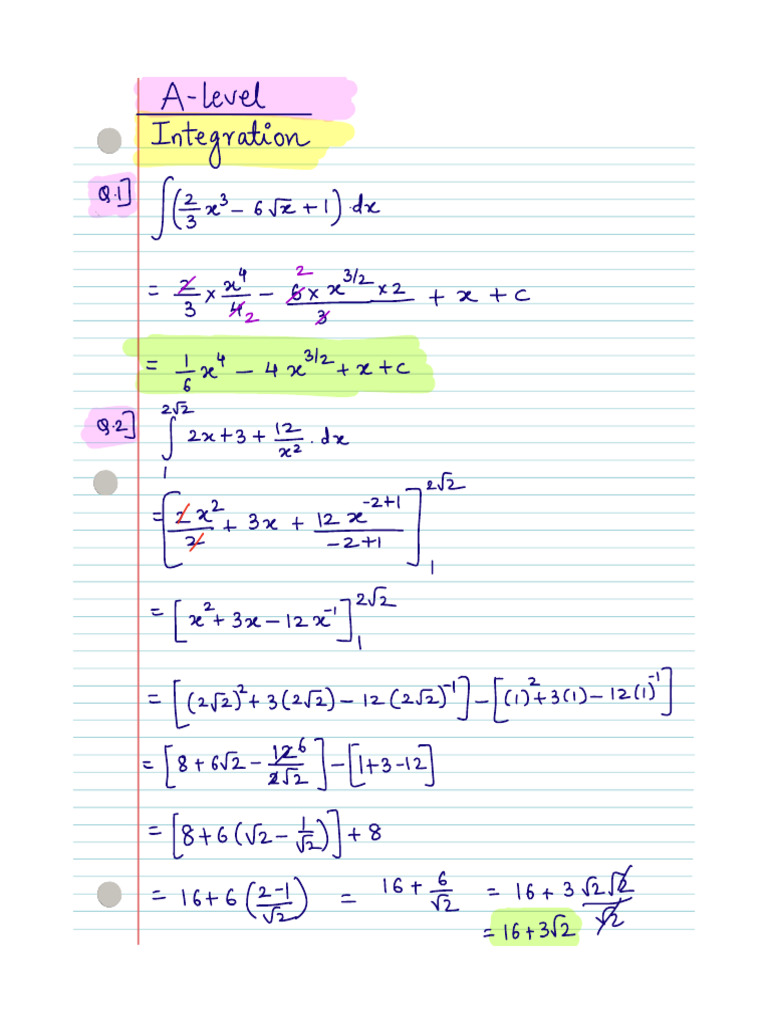 A-level
Integration
Q.1] ∫(2/3 x³ - 6√x + 1) dx
= 2/3 × x⁴/4 2 - 2 6 × x^3/2 × 2 / 3 + x + c
= 1/6 x⁴ - 4x^3/2 + x + c
Q.2] ∫₁^2√2 2x + 3 + 12/x² . dx
= [2x²/2 + 3x + 12x^-2+1 / -2+1]₁^2√2
= [x² + 3x - 12x^-1]₁^2√2
= [(2√2)² + 3(2√2) - 12(2√2)^-1] - [(1)² + 3(1) - 12(1)^-1]
= [8 + 6√2 - 12 6 / 2√2] - [1 + 3 - 12]
= [8 + 6(√2 - 1/√2)] + 8
= 16 + 6(2-1/√2) = 16 + 6/√2 = 16 + 3√2√2/√2
= 16 + 3√2